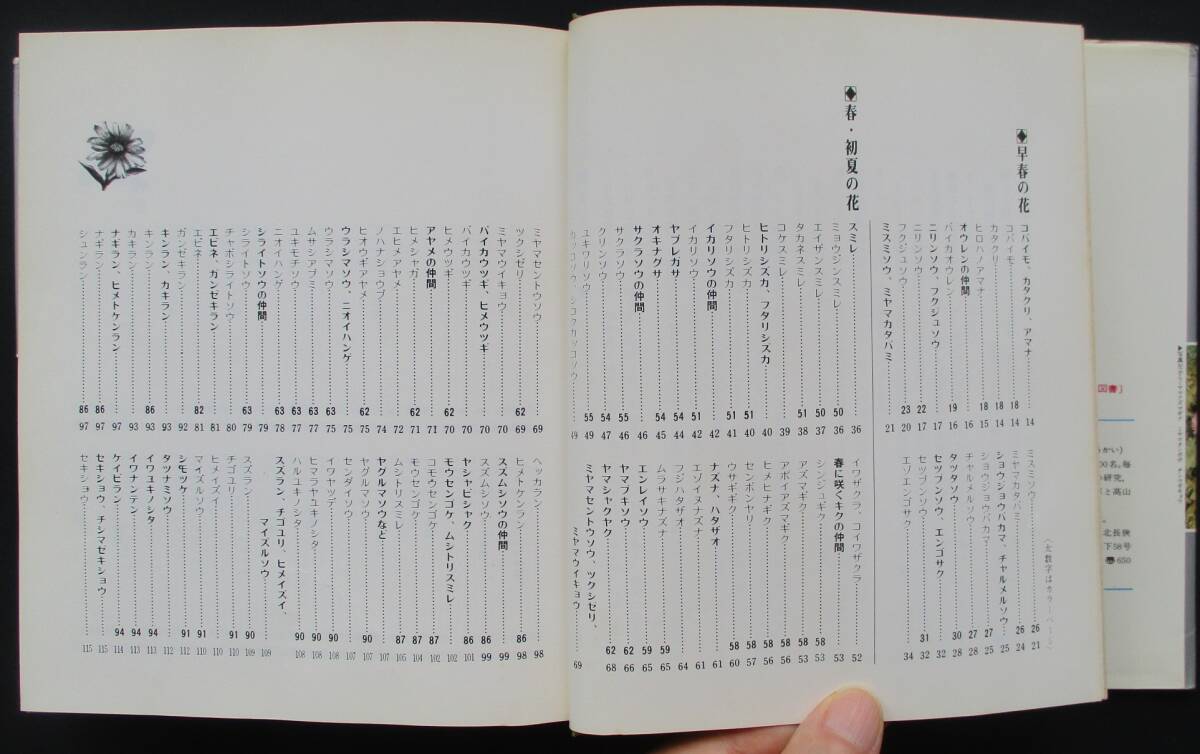 ◆早春の花
コバイモ、カタクリ、アマナ……14
コバイモ……18 14
カタクリ……18 14
ヒロハノアマナ……18 15
オウレンの仲間……16
バイカオウレン……19 16
ニリンソウ、フクジュソウ……17
ニリンソウ……22 17
フクジュソウ……23 20
ミスミソウ、ミヤマカタバミ……21
ミスミソウ……26 21
ミヤマカタバミ……26 24
ショウジョウバカマ、チャルメルソウ……25
ショウジョウバカマ……27 25
チャルメルソウ……27 28
タツタソウ……30 28
セツブンソウ、エンゴサク……32
セツブンソウ……31 32
エゾエンゴサク……34
〈太数字はカラーページ〉
◆春・初夏の花
スミレ……36
ミョウジンスミレ……50 36
エイザンスミレ……50 37
タカネスミレ……51 38
コケスミレ……39
ヒトリシズカ、フタリシズカ……40
ヒトリシズカ……51 40
フタリシズカ……51 41
イカリソウの仲間……42
イカリソウ……51 42
ヤブレガサ……54 44
オキナグサ……54 45
サクラソウの仲間……46
サクラソウ……55 46
クリンソウ……54 47
ユキワリソウ……55 49
カッコソウ、シコクカッコソウ……49
イワザクラ、コイワザクラ……52
春に咲くキクの仲間……53
シンジュギク……58 53
アズマギク……58 53
アポイアズマギク……58 56
ヒメヒナギク……58 56
センボンヤリ……57
ウサギギク……58 60
ナズナ、ハタザオ……61
エゾイヌナズナ……61
フジハタザオ……64
ムラサキナズナ……59 65
エンレイソウ……59 65
ヤマブキソウ……62 66
ヤマシャクヤク……62 68
ミヤマセントウソウ、ツクシゼリ、
ミヤマウイキョウ……69
ミヤマセントウソウ……69
ツクシゼリ……62 69
ミヤマウイキョウ……70
バイカウツギ、ヒメウツギ……70
バイカウツギ……70
ヒメウツギ……62 70
アヤメの仲間……71
ヒメシャガ……62 71
エヒメアヤメ……72
ノハナショウブ……74
ヒオウギアヤメ……62 75
ウラシマソウ、ニオイハンゲ……75
ウラシマソウ……63 75
ムサシアブミ……63 77
ユキモチソウ……63 77
ニオイハンゲ……63 78
シライトソウの仲間……79
シライトソウ……63 79
チャボシライトソウ……80
エビネ、ガンゼキラン……81
エビネ……82 81
ガンゼキラン……92
キンラン、カキラン……93
キンラン……86 93
カキラン……93
ナギラン、ヒメトケンラン……97
ナギラン……86 97
シュンラン……86 97
ヘッカラン……98
ヒメトケンラン……86 98
スズムシソウの仲間……99
スズムシソウ……86 99
ヤシャビシャク……86 101
モウセンゴケ、ムシトリスミレ……102
モウセンゴケ……87 102
コモウセンゴケ……87 104
ムシトリスミレ……87 105
ヤグルマソウなど……107
ヤグルマソウ……90 107
センダイソウ……107
イワヤツデ……90 108
ヒマラヤユキノシタ……90 108
ハルユキノシタ……90 108
スズラン、チゴユリ、ヒメイズイ、
マイズルソウ……109
スズラン……90 109
チゴユリ……91 110
ヒメイズイ……110
マイズルソウ……91 110
シモツケ……91 112
タツナミソウ……112
イワユキノシタ……94 113
イワナンテン……94 113
ケイビラン……94 114
セキショウ、チシマゼキショウ……115
セキショウ……115
図書」
うかい）
の研究,
北長狭
下58号
☎650